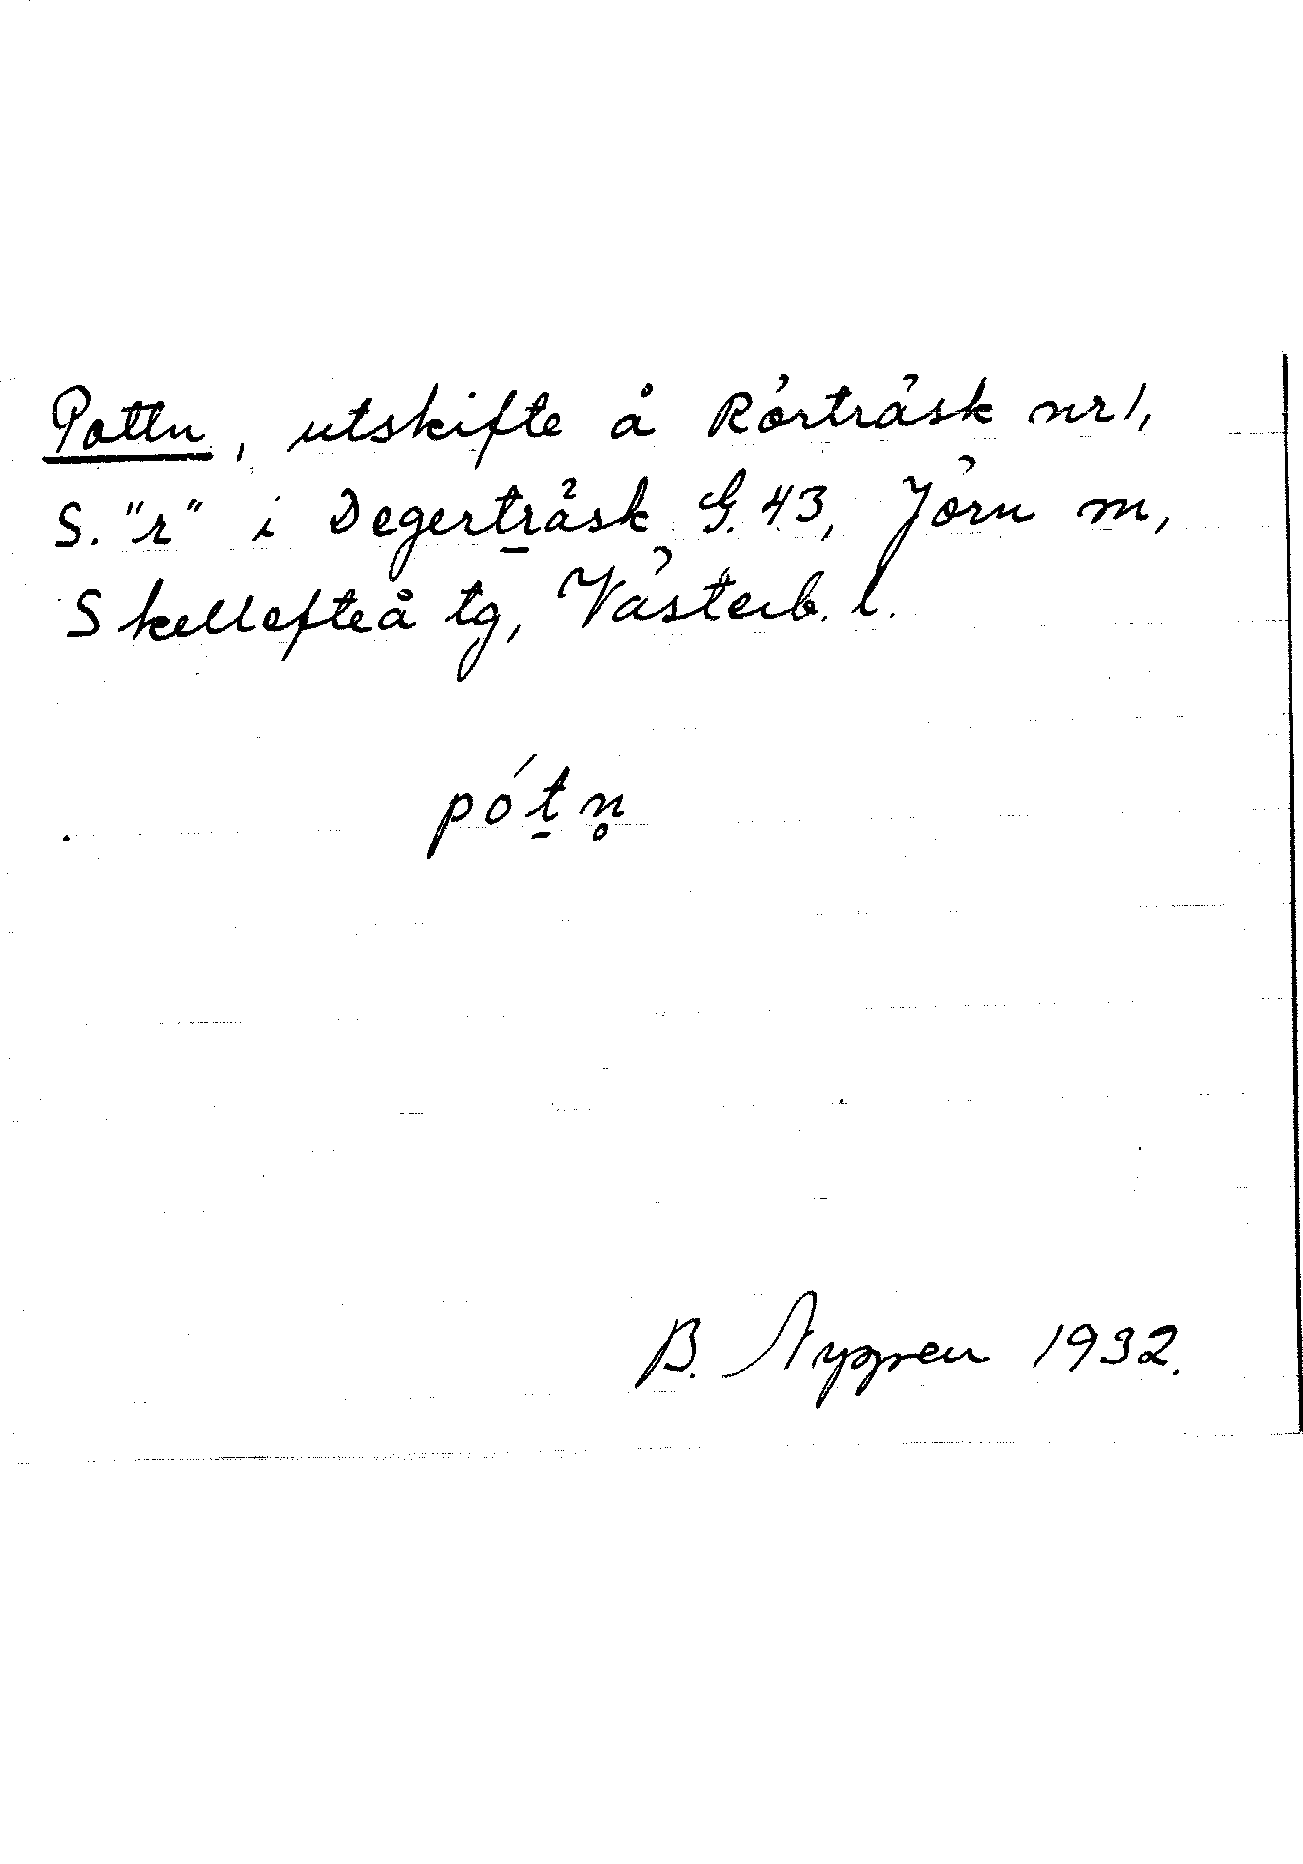 Pottn, utskifte å Rörträsk nr 1,
S. "r" i Degerträsk G. 43, Jörn sn,
Skellefteå tg, Västerb. l.
pót̠n̥
B. Nygren 1932.